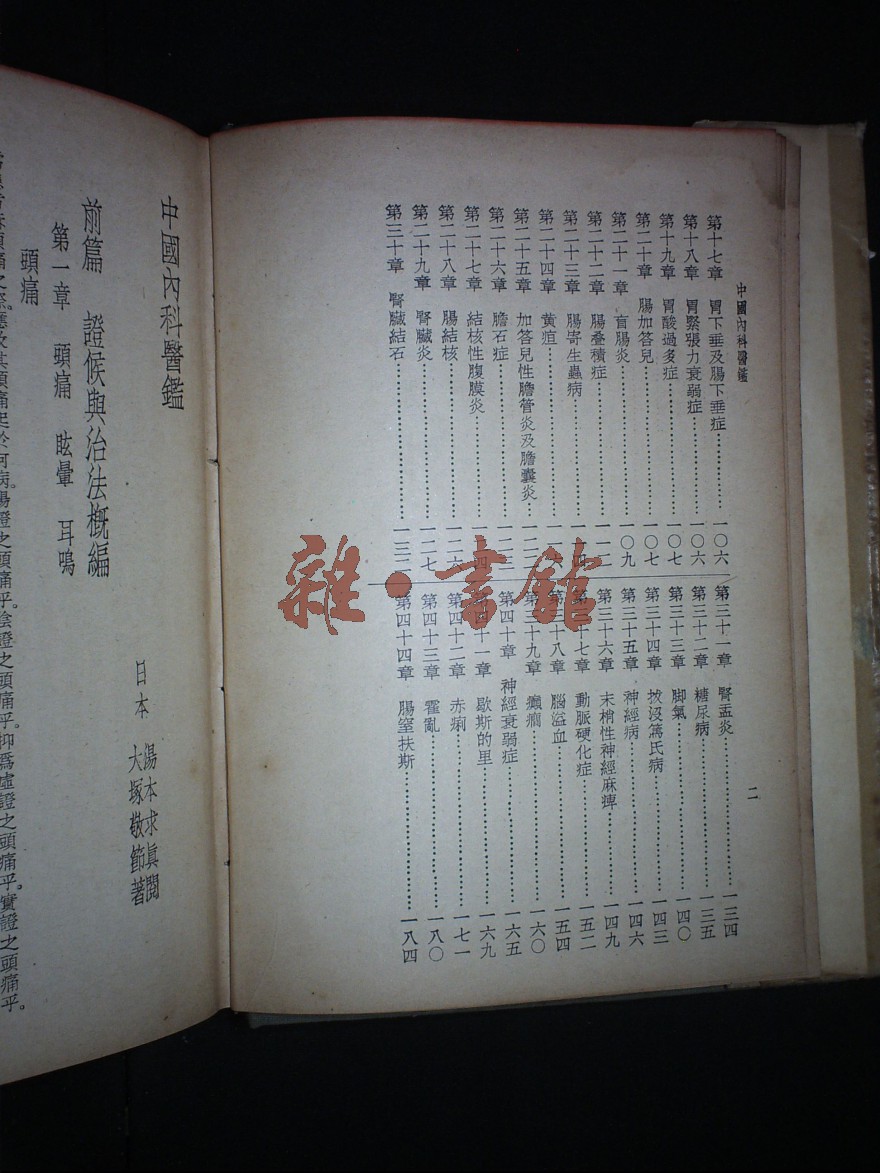 中國內科醫鑑
第十七章　胃下垂及腸下垂症………一〇六
第十八章　胃緊張力衰弱症………一〇六
第十九章　胃酸過多症………一〇七
第二十章　腸加答兒………一〇七
第二十一章　盲腸炎………一〇九
第二十二章　腸疊積症………一一二
第二十三章　腸寄生蟲病………一一四
第二十四章　黄疸………
第二十五章　加答兒性膽管炎及膽囊炎………
第二十六章　膽石症………
第二十七章　結核性腹膜炎………
第二十八章　腸結核………一二六
第二十九章　腎臟炎………一二七
第三十章　腎臟結石………一三二
第三十一章　腎盂炎………一三四
第三十二章　糖尿病………一三五
第三十三章　脚氣………一四〇
第三十四章　抜沒篤氏病………一四三
第三十五章　神經病………一四六
第三十六章　末梢性神經麻痺………一四九
第三十七章　動脈硬化症………一五二
第三十八章　腦溢血………一五四
第三十九章　癲癇………一六〇
第四十章　神經衰弱症………一六五
第四十一章　歇斯的里………一六九
第四十二章　赤痢………一七一
第四十三章　霍亂………一八〇
第四十四章　腸窒扶斯………一八四
二
雜·書館
中國內科醫鑑
日本　湯本求眞閱
大塚敬節著
前篇　證候與治法概編
第一章　頭痛　眩暈　耳鳴
頭痛
頭痛之際。應攷其頭痛起於何病。陽證之頭痛乎。陰證之頭痛乎。抑爲虛證之頭痛乎。實證之頭痛乎。